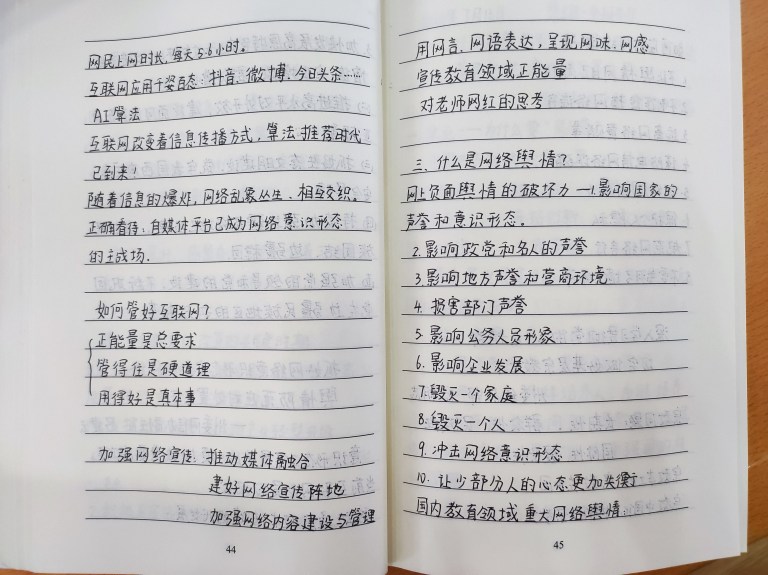 网民上网时长,每天5-6小时。
互联网应用千姿百态:抖音、微博、今日头条……
AI算法
互联网改变着信息传播方式,算法推荐时代
已到来!
随着信息的爆炸,网络乱象丛生、相互交织。
正确看待,自媒体平台已成为网络意识形态
的主战场.
如何管好互联网?
正能量是总要求
管得住是硬道理
用得好是真本事
加强网络宣传:推动媒体融合
建好网络宣传阵地
加强网络内容建设与管理
44
用网言、网语表达,呈现网味、网感
宣传教育领域正能量
对老师网红的思考
三、什么是网络舆情?
网上负面舆情的破坏力—1.影响国家的
声誉和意识形态。
2.影响政党和名人的声誉
3.影响地方声誉和营商环境
4.损害部门声誉
5.影响公务人员形象
6.影响企业发展
7.毁灭一个家庭
8.毁灭一个人
9.冲击网络意识形态
10.让少部分人的心态更加失衡
国内教育领域重大网络舆情:
45